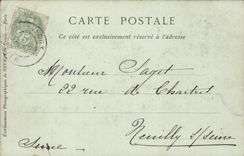 CARTE POSTALE
Ce côté est exclusivement réservé à l'adresse
Monsieur Saget
22 rue de Chartres
Neuilly s/Seine
Seine
Etablissements Photographiques de Paris